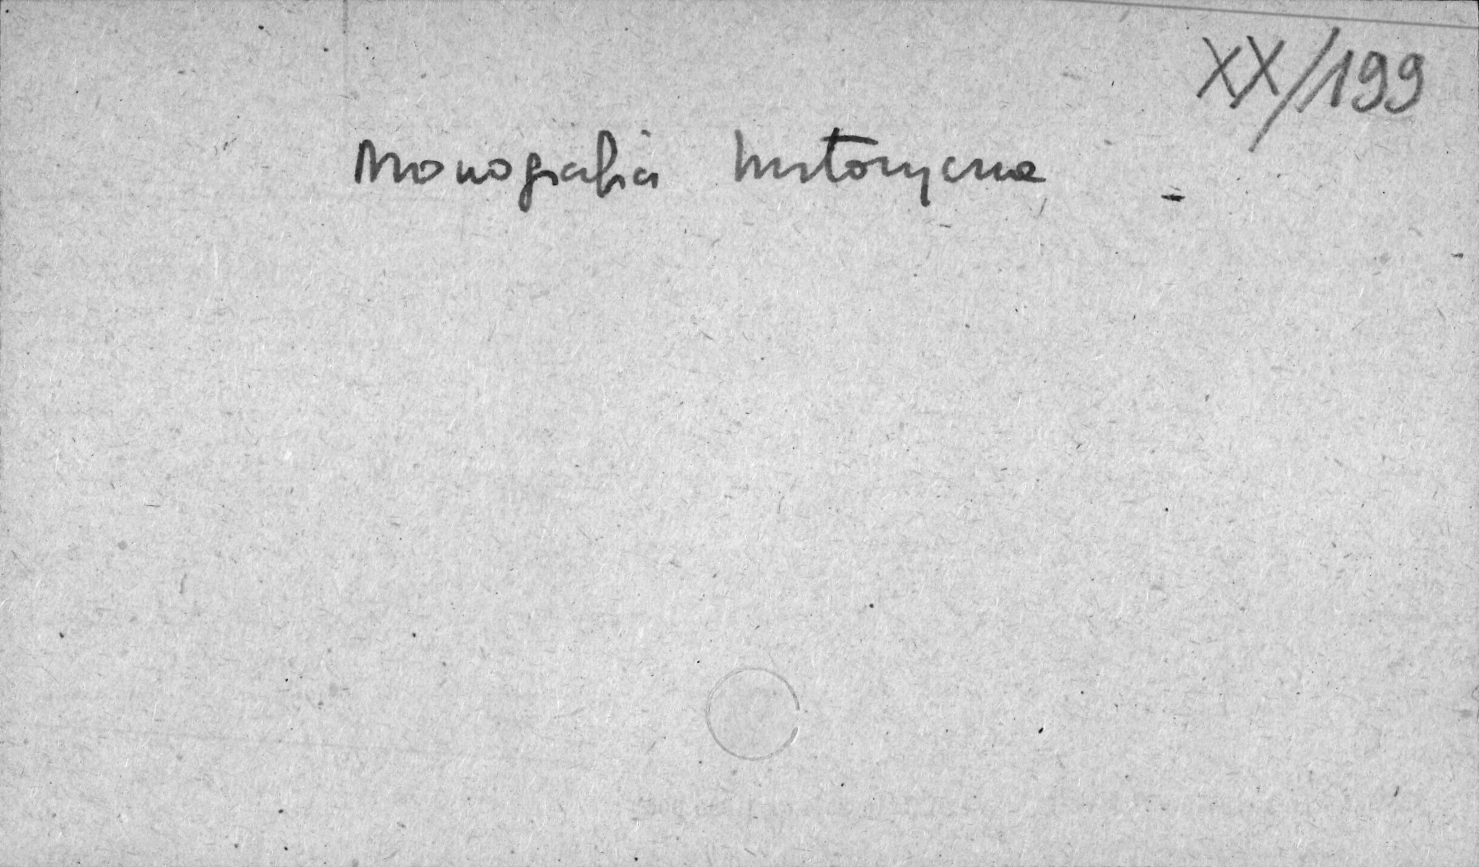 XX/199
Monografia historyczna